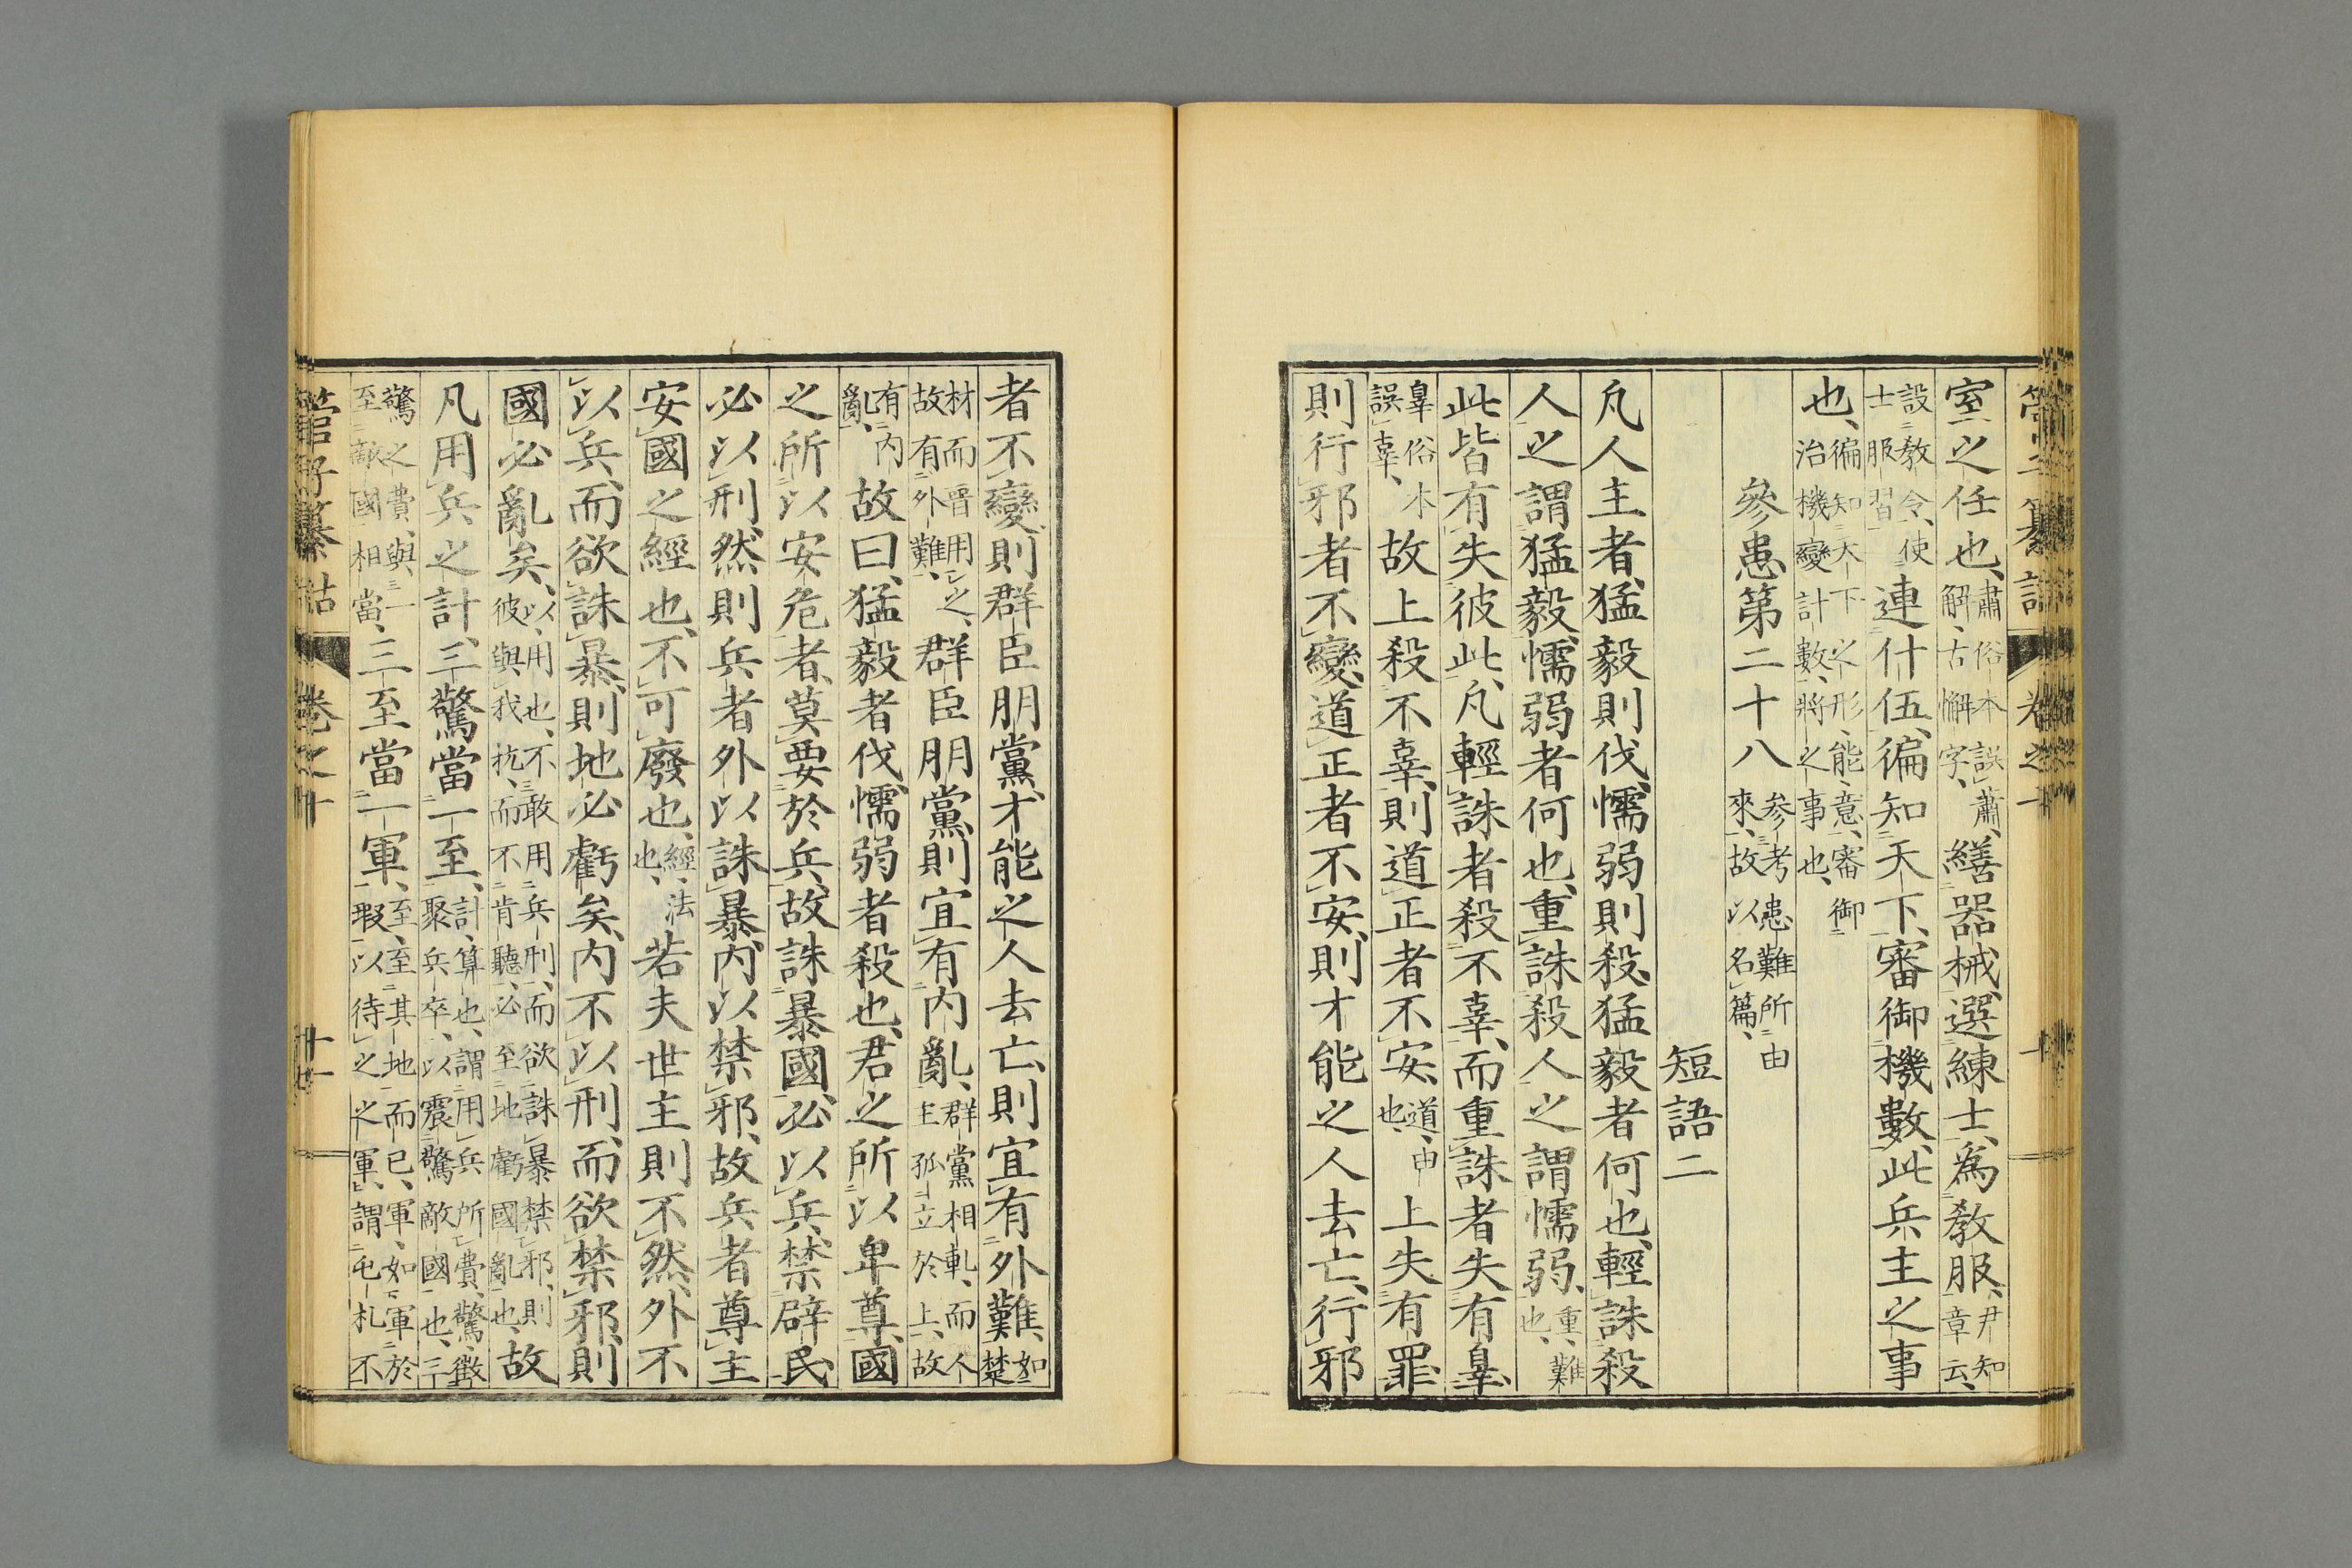 管子纂詁 卷之十
室之任也、肅俗本誤蕭、解、古懈字、繕器械、選練士、爲教服、尹知章云、
設教令、使士服習、連什伍、徧知天下、審御機數、此兵主之事
也、徧知天下之形、能、意、審御治機變計數、將之事也、
參患第二十八 參考患難所由來、故以名篇、
短語二
凡人主者、猛毅則伐、懦弱則殺、猛毅者何也、輕誅殺
人之謂猛毅、懦弱者何也、重誅殺人之謂懦弱、重、難也、
此皆有失彼此、凡輕誅者殺不辜、而重誅者失有辠、
辠俗本誤辜、故上殺不辜、則道正者不安、道、由也、上失有罪、
則行邪者不變、道正者不安、則才能之人去亡、行邪
者不變、則群臣朋黨、才能之人去亡、則宜有外難、如楚
材而晋用之、故有外難、群臣朋黨、則宜有内亂、群黨相軋、而人主孤立於上、故
有内亂、故曰、猛毅者伐、懦弱者殺也、君之所以卑尊、國
之所以安危者、莫要於兵、故誅暴國、必以兵、禁辟民
必以刑、然則兵者外以誅暴、内以禁邪、故兵者尊主
安國之經也、不可廢也、經、法也、若夫世主則不然、外不
以兵、而欲誅暴、則地必虧矣、内不以刑、而欲禁邪、則
國必亂矣、以、用也、不敢用兵刑、而欲誅暴禁邪、則彼與我抗、而不肯聽、必至地虧國亂也、故
凡用兵之計、三驚當一至、計、算也、謂用兵所費、驚、徴聚兵卒、以震驚敵國也、三
驚之費、與一至敵國相當、三至當一軍、至、至其地而已、軍、如軍於瑕以待之之軍、謂屯札不
管子纂詁 卷之十 十一